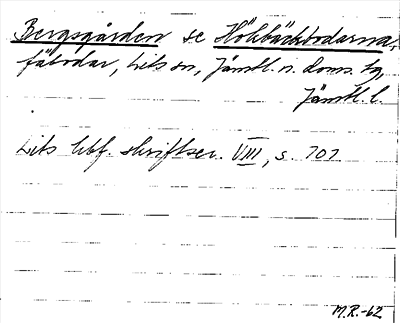 Bergsgården se Höhbäckbodarna,
fäbodar, Lits sn, Jämtl. n. doms. tg,
Jämtl. l.
Lits hbf. skriftser. VIII, s. 707
M.R.-62